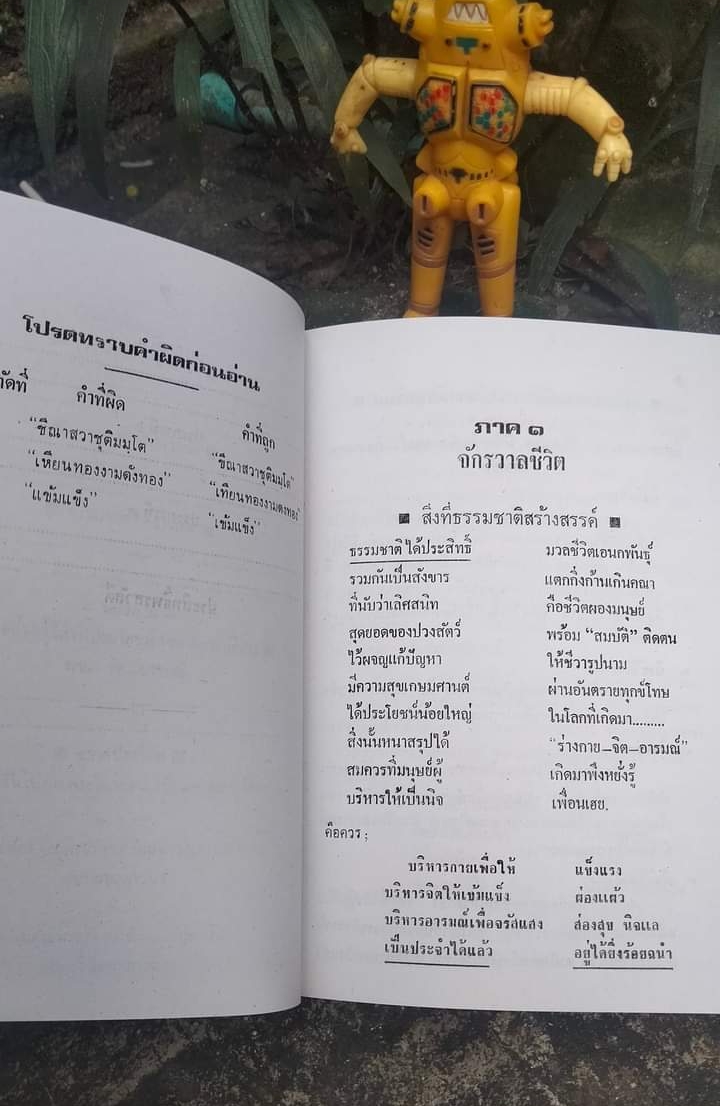 โปรดทราบคำผิดก่อนอ่าน
คำที่ผิด คำที่ถูก
“ขีณาสวาชุติมมฺโต” “ขีณาสวาชุติมนฺโต”
“เหียนทองงามดังทอง” “เทียนทองงามดังทอง”
“แข้มแข็ง” “เข้มแข็ง”
ภาค ๑
จักรวาลชีวิต
■ สิ่งที่ธรรมชาติสร้างสรรค์ ■
ธรรมชาติ ได้ประสิทธิ์ มวลชีวิตเอนกพันธุ์
รวมกันเป็นสังขาร แตกกิ่งก้านเกินคณา
ที่นับว่าเลิศสนิท คือชีวิตผองมนุษย์
สุดยอดของปวงสัตว์ พร้อม “สมบัติ” ติดตน
ไว้ผจญแก้ปัญหา ให้ชีวารูปนาม
มีความสุขเกษมศานต์ ผ่านอันตรายทุกข์โทษ
ได้ประโยชน์น้อยใหญ่ ในโลกที่เกิดมา.........
สิ่งนั้นหนาสรุปได้ “ร่างกาย–จิต–อารมณ์”
สมควรที่มนุษย์ผู้ เกิดมาพึงหยั่งรู้
บริหารให้เป็นนิจ เพื่อนเฮย.
คือควร ;
บริหารกายเพื่อให้ แข็งแรง
บริหารจิตให้เข้มแข็ง ผ่องแผ้ว
บริหารอารมณ์เพื่อจรัสแสง ส่องสุข นิจแล
เป็นประจำได้แล้ว อยู่ได้ยิ่งร้อยฉนำ